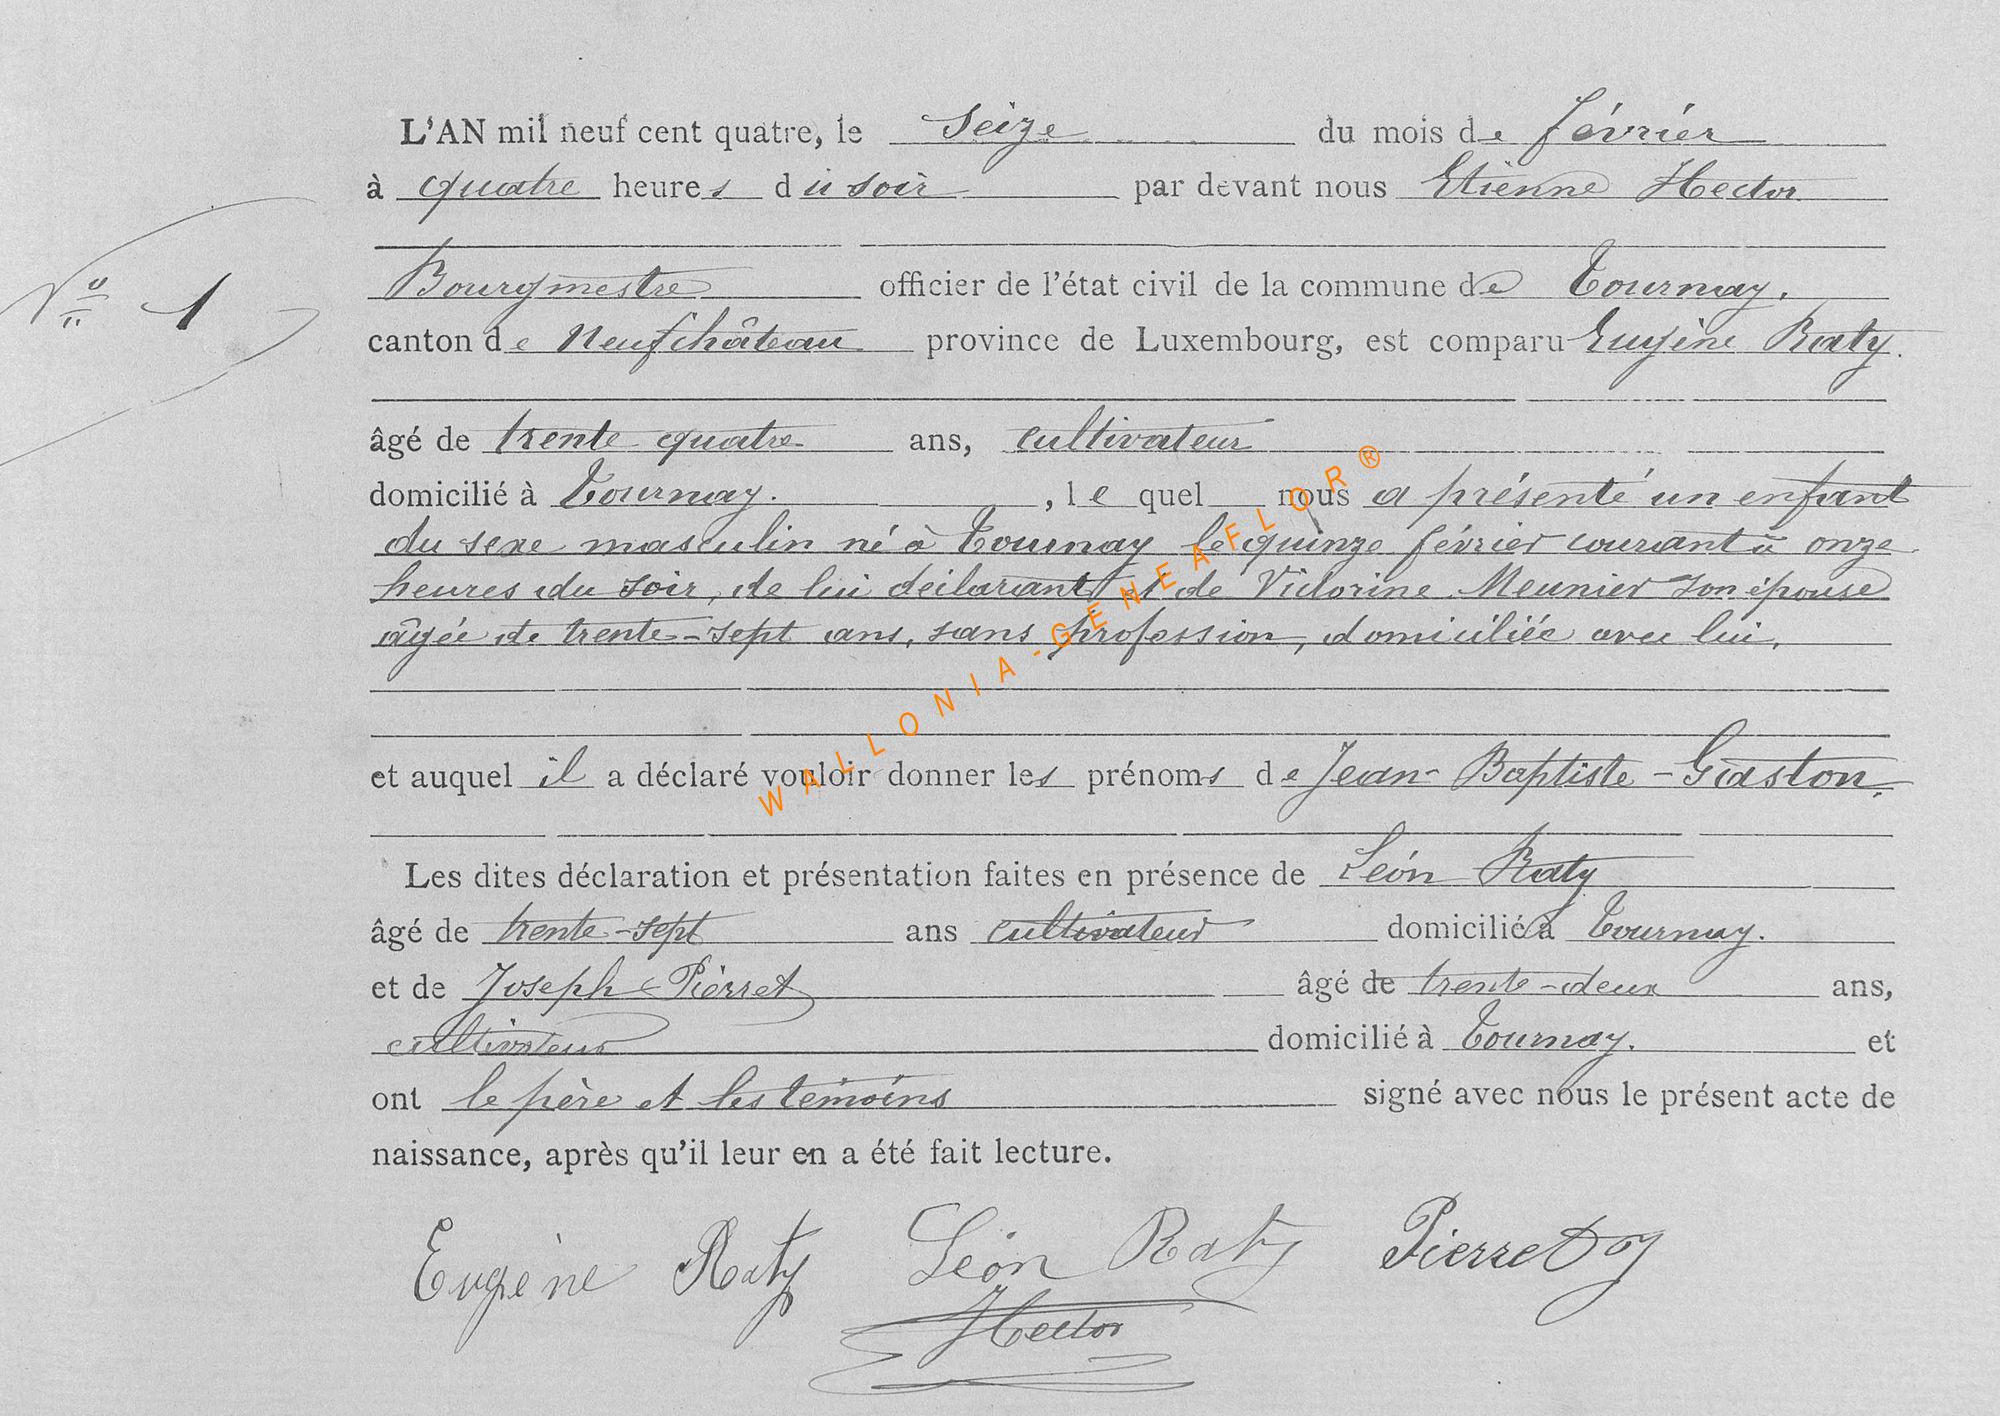 L'AN mil neuf cent quatre, le seize du mois de février
à quatre heures du soir par devant nous Etienne Hector
N° 1
Bourgmestre officier de l'état civil de la commune de Tournay.
canton de Neufchâteau province de Luxembourg, est comparu Eugène Raty.
âgé de trente quatre ans, cultivateur
domicilié à Tournay. , le quel nous a présenté un enfant
du sexe masculin né à Tournay le quinze février courant à onze
heures du soir, de lui déclarant et de Victorine Meunier son épouse
âgée de trente-sept ans, sans profession, domiciliée avec lui,
et auquel il a déclaré vouloir donner les prénoms de Jean-Baptiste-Gaston.
Les dites déclaration et présentation faites en présence de Léon Raty
âgé de trente-sept ans cultivateur domicilié à Tournay.
et de Joseph Pierret âgé de trente-deux ans,
cultivateur domicilié à Tournay. et
ont le père et les témoins signé avec nous le présent acte de
naissance, après qu'il leur en a été fait lecture.
Eugène Raty Léon Raty Pierret
Hector
WALLONIA-GENEAFLOR®